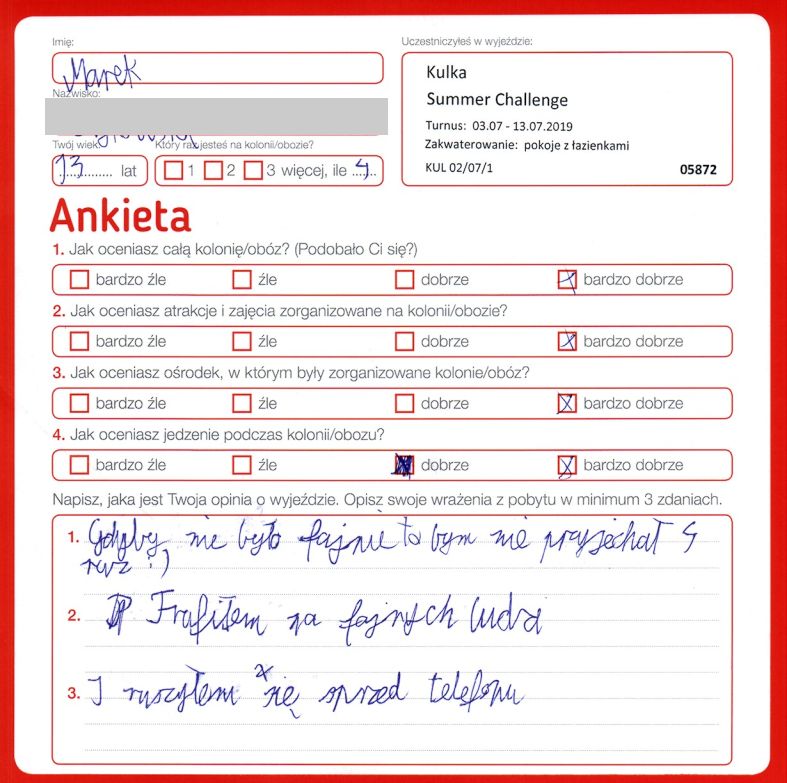 Imię:
Marek
Nazwisko:
Twój wiek
13 lat
Który raz jesteś na kolonii/obozie?
1 2 3 więcej, ile 4
Uczestniczyłeś w wyjeździe:
Kulka
Summer Challenge
Turnus: 03.07 - 13.07.2019
Zakwaterowanie: pokoje z łazienkami
KUL 02/07/1 05872
Ankieta
1. Jak oceniasz całą kolonię/obóz? (Podobało Ci się?)
bardzo źle źle dobrze bardzo dobrze
2. Jak oceniasz atrakcje i zajęcia zorganizowane na kolonii/obozie?
bardzo źle źle dobrze bardzo dobrze
3. Jak oceniasz ośrodek, w którym były zorganizowane kolonie/obóz?
bardzo źle źle dobrze bardzo dobrze
4. Jak oceniasz jedzenie podczas kolonii/obozu?
bardzo źle źle dobrze bardzo dobrze
Napisz, jaka jest Twoja opinia o wyjeździe. Opisz swoje wrażenia z pobytu w minimum 3 zdaniach.
1. Gdyby nie było fajnie to bym nie przyjechał 4
raz :)
2. Trafiłem na fajnych ludzi
3. I ruszyłem się sprzed telefonu